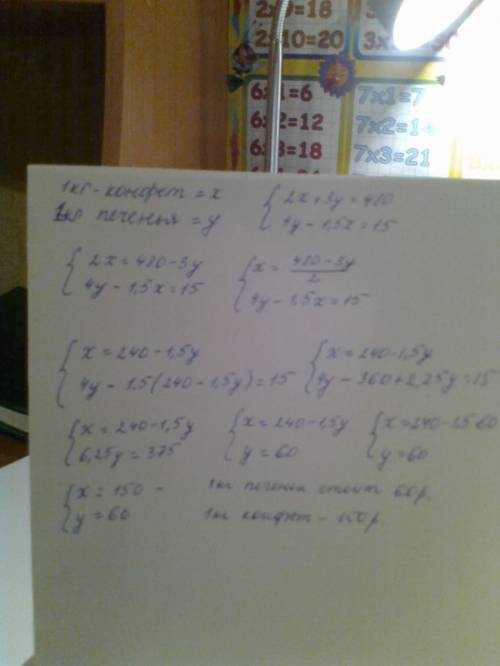 2x9=18
2x10=20
6x1=6
6x2=12
6x3=18
7x1=7
7x2=14
7x3=21
1кг - конфет = x
1кг печенья = y
{ 2x+3y=480
4y-1,5x=15
{ 2x=480-3y
4y-1,5x=15
{ x= 480-3y / 2
4y-1,5x=15
{ x=240-1,5y
4y-1,5(240-1,5y)=15
{ x=240-1,5y
4y-360+2,25y=15
{ x=240-1,5y
6,25y=375
{ x=240-1,5y
y=60
{ x=240-1,5·60
y=60
{ x=150 -
y=60
1кг печенья стоит 60р.
1кг конфет - 150р.